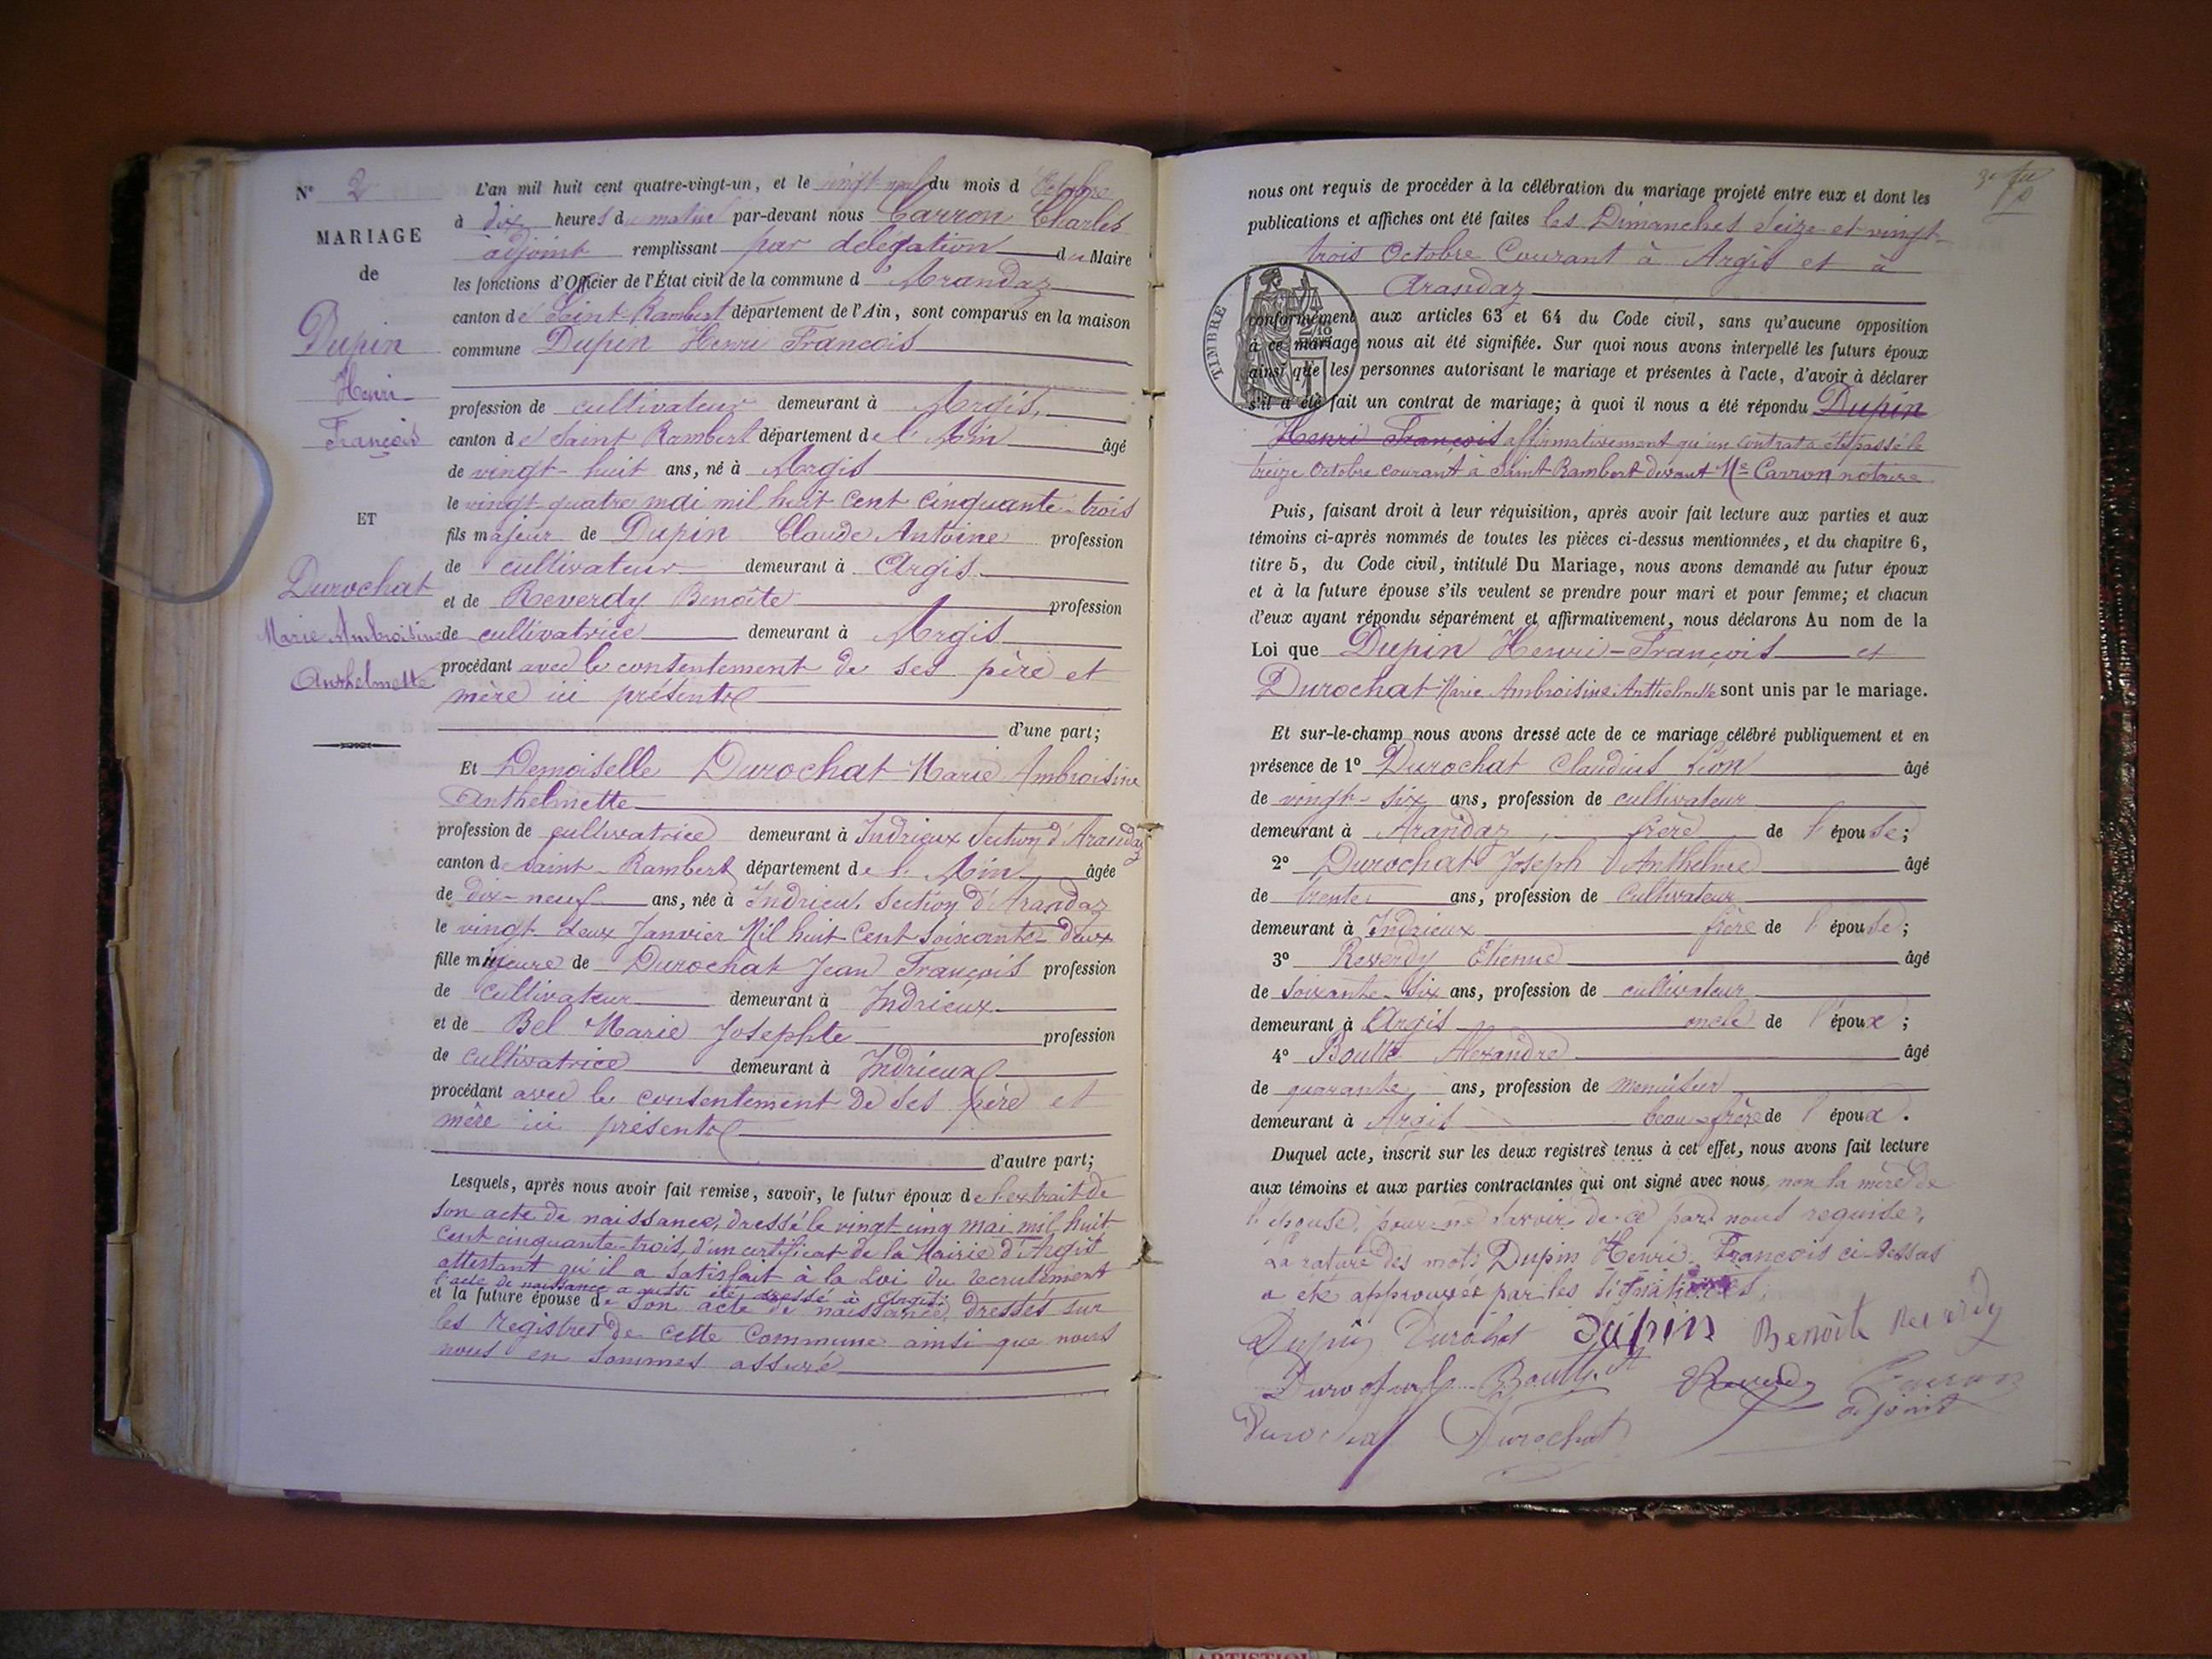 N° 2
MARIAGE
de
Dupin
Henri
François
ET
Durochat
Marie Ambroisine
Anthelmette
L'an mil huit cent quatre-vingt-un, et le vingt-neuf du mois d'Octobre
à dix heures du matin par-devant nous Carron Charles
adjoint remplissant par délégation du Maire
les fonctions d'Officier de l'État civil de la commune d'Arandaz
canton de Saint-Rambert département de l'Ain, sont comparus en la maison
commune Dupin Henri François
profession de cultivateur demeurant à Argis,
canton de Saint Rambert département de l'Ain âgé
de vingt-huit ans, né à Argis
le vingt quatre mai mil huit cent cinquante-trois
fils majeur de Dupin Claude Antoine profession
de cultivateur demeurant à Argis
et de Reverdy Benoîte profession
de cultivatrice demeurant à Argis
procédant avec le consentement de ses père et
mère ici présents
d'une part;
Et Demoiselle Durochat Marie Ambroisine
Anthelmette
profession de cultivatrice demeurant à Indrieux Section d'Arandaz
canton de Saint-Rambert département de l'Ain âgée
de dix-neuf ans, née à Indrieux Section d'Arandaz
le vingt deux Janvier Mil huit Cent soixante-deux
fille mineure de Durochat Jean François profession
de cultivateur demeurant à Indrieux
et de Bel Marie Josephte profession
de cultivatrice demeurant à Indrieux
procédant avec le consentement de ses père et
mère ici présents
d'autre part;
Lesquels, après nous avoir fait remise, savoir, le futur époux de l'extrait de
son acte de naissance, dressé le vingt cinq mai mil huit
cent cinquante-trois, d'un certificat de la Mairie d'Argis
attestant qu'il a satisfait à la Loi du recrutement
l'acte de naissance a aussi été dressé à Argis.
et la future épouse de son acte de naissance, dressés sur
les registres de cette Commune ainsi que nous
nous en sommes assuré
nous ont requis de procéder à la célébration du mariage projeté entre eux et dont les
publications et affiches ont été faites les Dimanches Seize et vingt-
trois Octobre Courant à Argis et à
Arandaz
TIMBRE
conformément aux articles 63 et 64 du Code civil, sans qu'aucune opposition
à ce mariage nous ait été signifiée. Sur quoi nous avons interpellé les futurs époux
ainsi que les personnes autorisant le mariage et présentes à l'acte, d'avoir à déclarer
s'il a été fait un contrat de mariage; à quoi il nous a été répondu Dupin
Henri François affirmativement qu'un contrat a été passé le
treize Octobre courant à Saint-Rambert devant Me Carron notaire
Puis, faisant droit à leur réquisition, après avoir fait lecture aux parties et aux
témoins ci-après nommés de toutes les pièces ci-dessus mentionnées, et du chapitre 6,
titre 5, du Code civil, intitulé Du Mariage, nous avons demandé au futur époux
et à la future épouse s'ils veulent se prendre pour mari et pour femme; et chacun
d'eux ayant répondu séparément et affirmativement, nous déclarons Au nom de la
Loi que Dupin Henri-François et
Durochat Marie Ambroisine Anthelmette sont unis par le mariage.
Et sur-le-champ nous avons dressé acte de ce mariage célébré publiquement et en
présence de 1° Durochat Claudius Léon âgé
de vingt-six ans, profession de cultivateur
demeurant à Arandaz, frère de l'épouse;
2° Durochat Joseph Anthelme âgé
de trente ans, profession de Cultivateur
demeurant à Indrieux frère de l'épouse;
3° Reverdy Etienne âgé
de soixante-six ans, profession de cultivateur
demeurant à Argis oncle de l'époux;
4° Alexandre âgé
de quarante ans, profession de menuisier
demeurant à Argis beau-frère de l'époux.
Duquel acte, inscrit sur les deux registres tenus à cet effet, nous avons fait lecture
aux témoins et aux parties contractantes qui ont signé avec nous, non la mère de
l'épouse, pour ne savoir de ce par nous requise.
La rature des mots Dupin Henri-François ci-dessus
a été approuvée par les signataires.
Dupin Durochat Dupin Benoîte Reverdy
Durochat Reverdy Carron
adjoint
Durochat Durochat